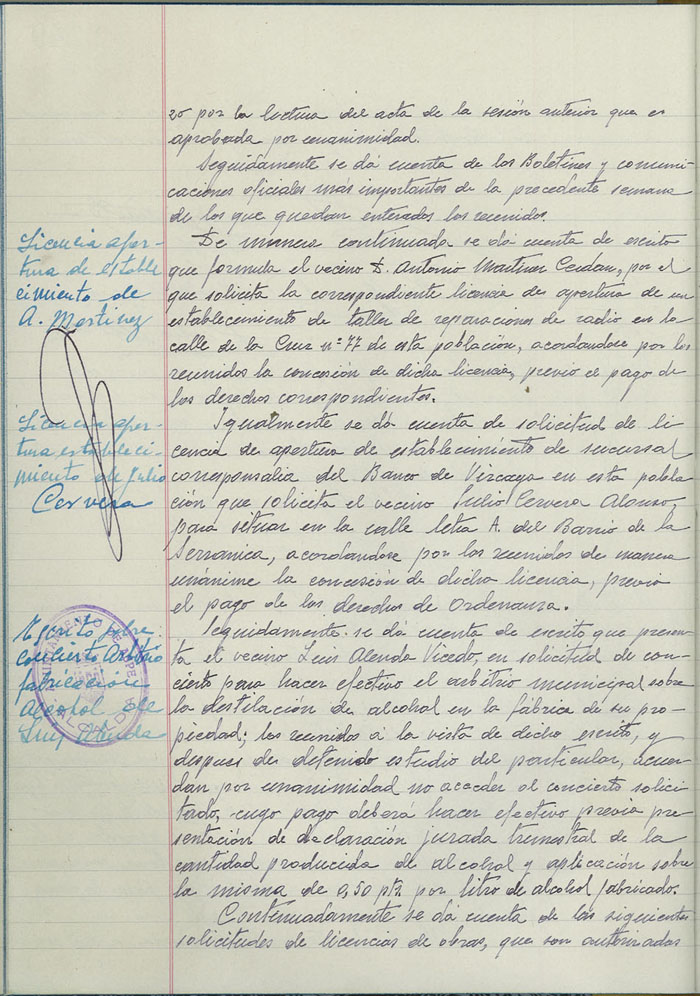 zo por la lectura del acta de la sesión anterior que es
aprobada por unanimidad.
Seguidamente se dá cuenta de los Boletines y comuni-
caciones oficiales más importantes de la precedente semana
de los que quedan enterados los reunidos.
Licencia aper-
tura de estable
cimiento de
A. Martinez
De manera continuada se dá cuenta de escrito
que formula el vecino D. Antonio Martinez Cerdan, por el
que solicita la correspondiente licencia de apertura de un
establecimiento de taller de reparaciones de radio en la
calle de la Cruz nº 77 de esta población, acordandose por los
reunidos la concesión de dicha licencia, previo el pago de
los derechos correspondientes.
Licencia aper-
tura estableci-
miento de Julio
Cervera
Igualmente se dá cuenta de solicitud de li
cencia de apertura de establecimiento de sucursal
corresponsalia del Banco de Vizcaya en esta pobla
ción que solicita el vecino Julio Cervera Alonso,
para situar en la calle letra A. del Barrio de la
Serranica, acordandose por los reunidos de manera
unánime la concesión de dicha licencia, previo
el pago de los derechos de Ordenanza.
Escrito sobre
concierto Arbitrio
fabricación
alcohol de
Luis Alenda
AYUNTAMIENTO DE ASPE
ALCALDIA
Seguidamente se dá cuenta de escrito que presen-
ta el vecino Luis Alenda Vicedo, en solicitud de con-
cierto para hacer efectivo el arbitrio municipal sobre
la destilación de alcohol en la fábrica de su pro-
piedad; los reunidos á la vista de dicho escrito, y
despues de detenido estudio del particular, acuer-
dan por unanimidad no acceder al concierto solici-
tado, cuyo pago deberá hacer efectivo previa pre-
sentación de declaración jurada trimestral de la
cantidad producida de alcohol y aplicación sobre
la misma de 0,50 pts por litro de alcohol fabricado.
Contenuadamente se dá cuenta de las siguientes
solicitudes de licencias de obras, que son autorizadas